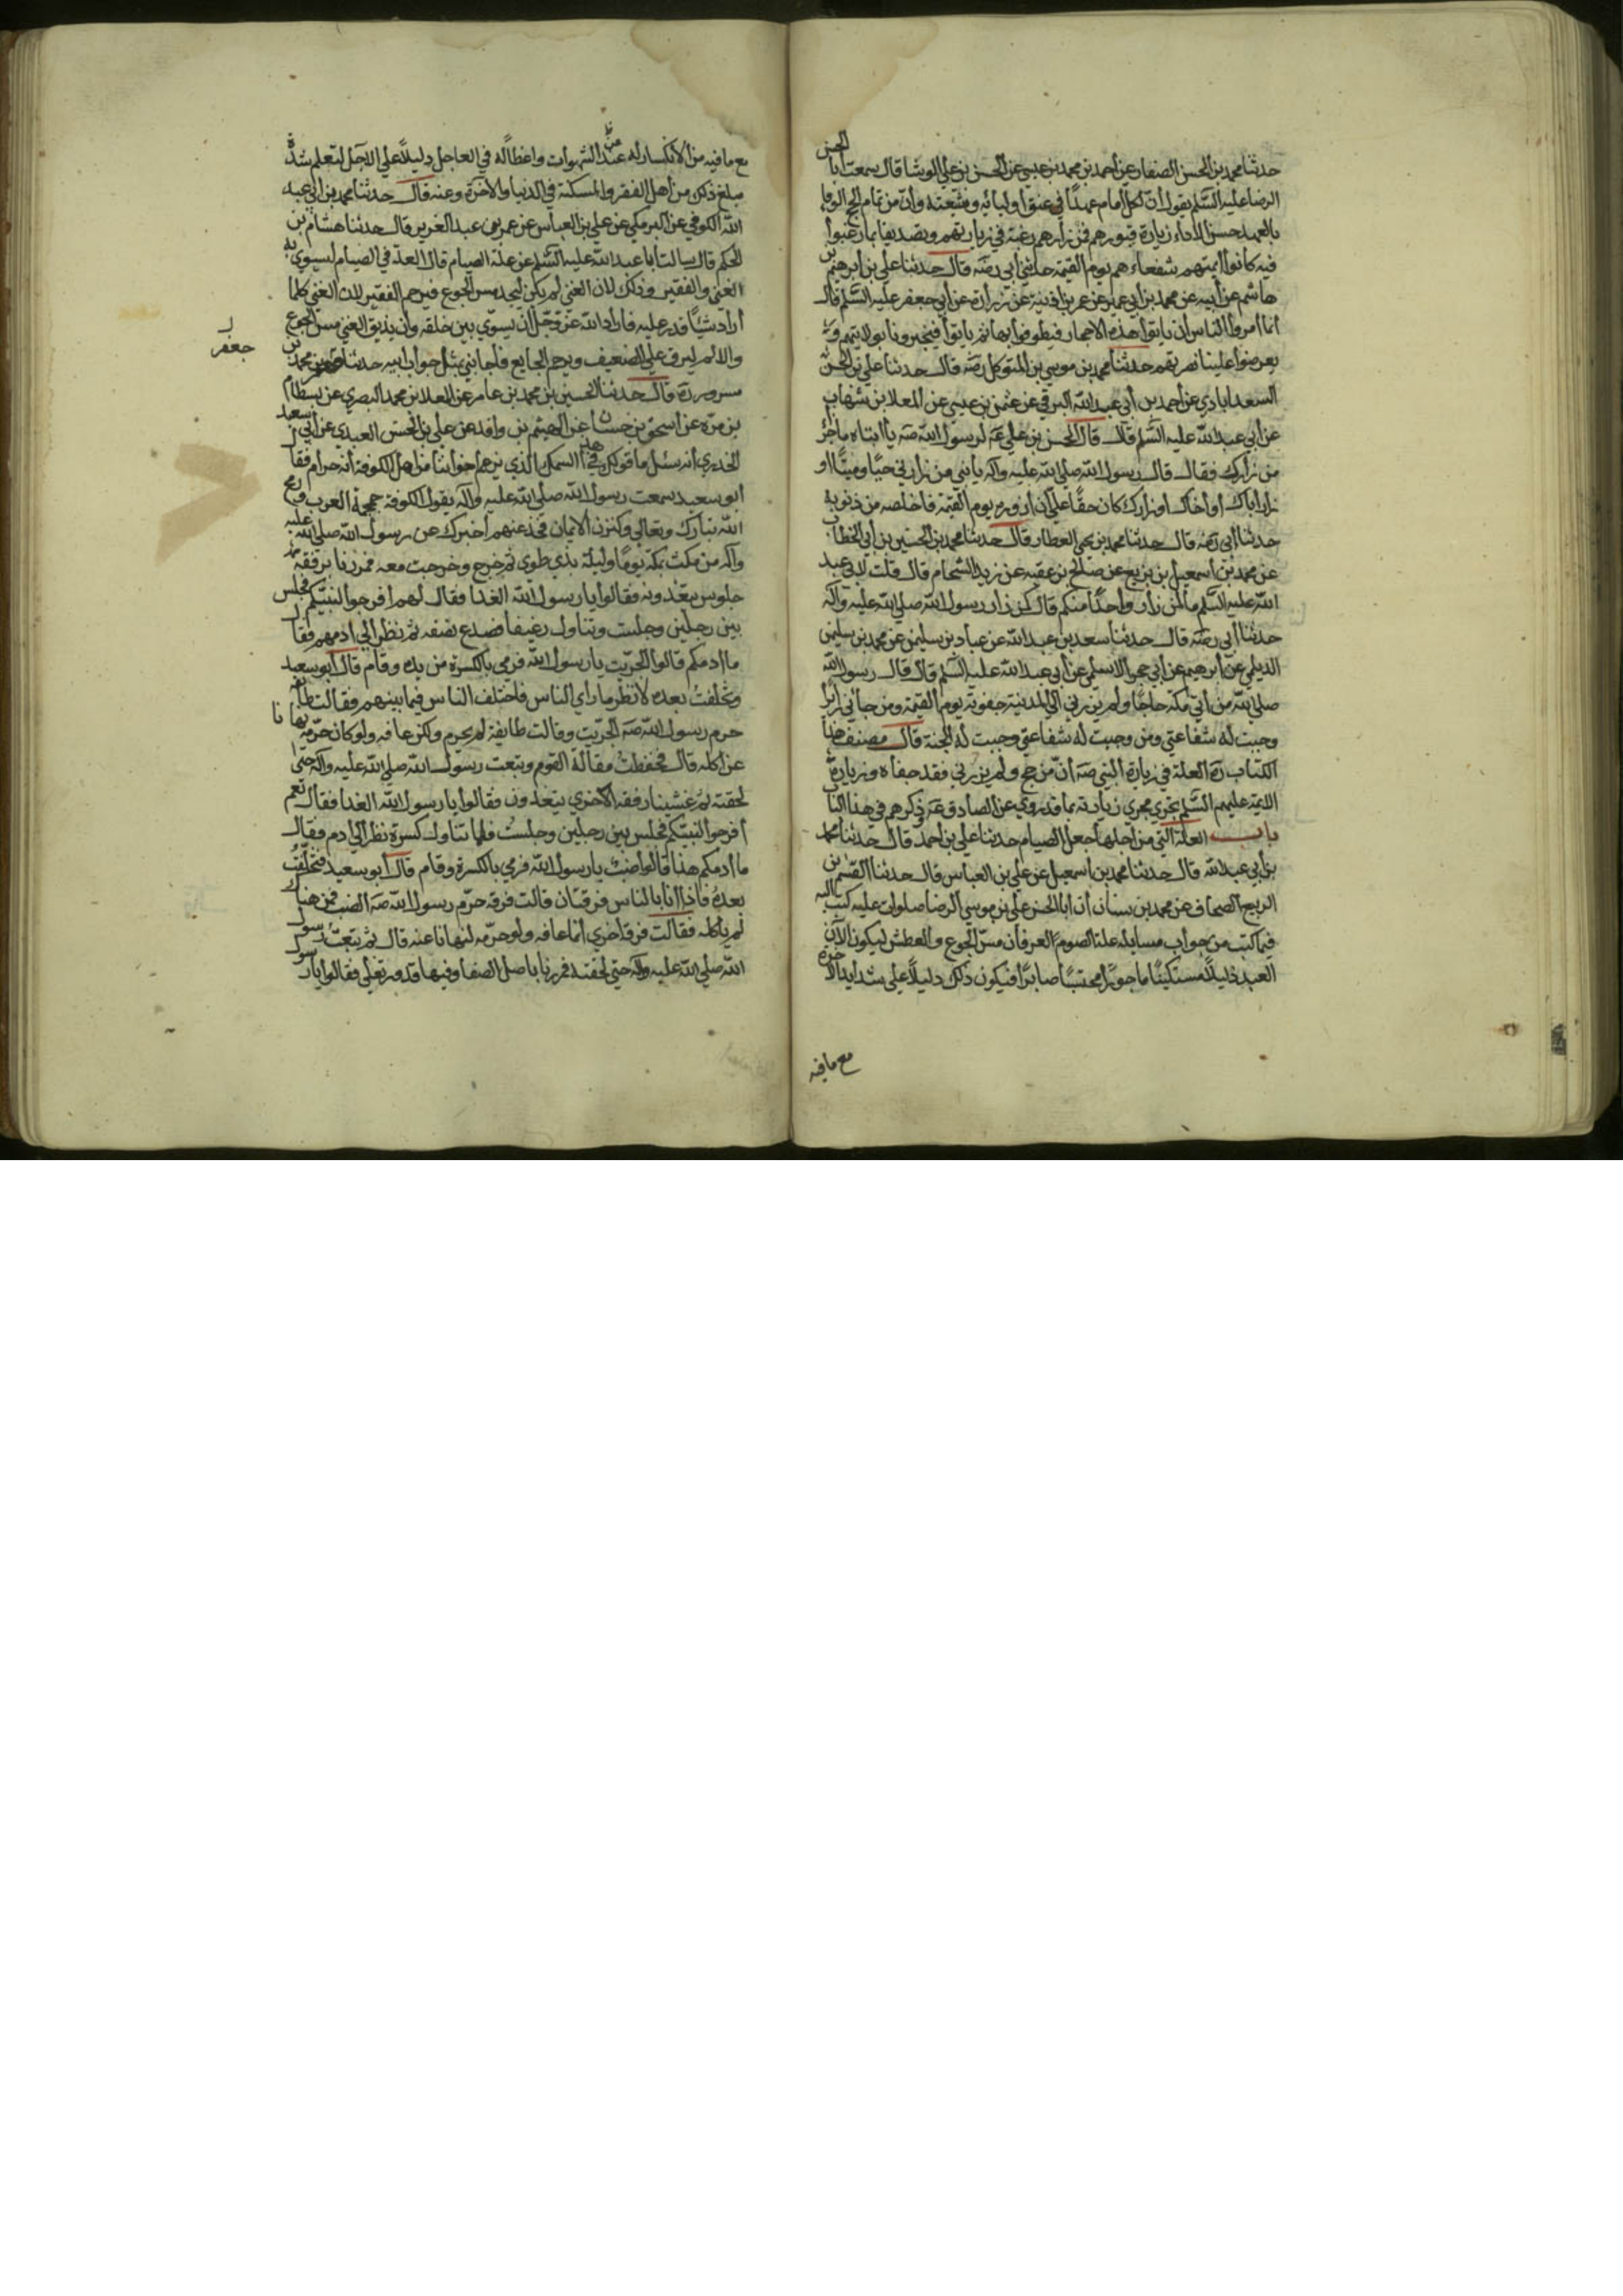 حدثنا محمد بن الحسن الصفار عن احمد بن محمد بن عيسى عن الحسن بن علي الوشا قال سمعت ابا الحسن
الرضا عليه السلم يقول ان لكل امام عهدًا في عنق اوليائه وشيعته وان من تمام الوفا
بالعهد حسن الاداء زيارة قبورهم فمن زارهم رغبة في زيارتهم وتصديقا بما رغبوا
فيه كانوا ائمتهم شفعاءهم يوم القيمة حدثني ابي رضه قال حدثنا علي بن ابرهيم بن
هاشم عن ابيه عن محمد بن ابي عمير عن عمر بن اذينة عن زرارة عن ابي جعفر عليه السلم قال
انما امروا الناس ان ياتوا هذه الاحجار فيطوفوا بها ثم ياتوا فيخبرونا بولايتهم و
يعرضوا علينا نصرتهم حدثنا محمد بن موسى بن المتوكل رضه قال حدثنا علي بن الحسين
السعدابادي عن احمد بن ابي عبد الله البرقي عن عثمن بن عيسى عن المعلا بن شهاب
عن ابي عبد الله عليه السلم قال قال الحسن بن علي عه لرسول الله صه يا ابتاه ما جزا
من زارك فقال قال رسول الله صلى الله عليه واله يا بني من زارني حيًا وميتًا او
زار اباك او اخاك او زارك كان حقًا علي ان ازوره يوم القيمة فاخلصه من ذنوبه
حدثنا ابي رضه قال حدثنا محمد بن يحيى العطار قال حدثنا محمد بن الحسين بن ابي الخطاب
عن محمد بن اسمعيل بن بزيع عن صالح بن عقبه عن زيد الشحام قال قلت لابي عبد
الله عليه السلم ما لمن زار واحدًا منكم قال كمن زار رسول الله صلى الله عليه واله
حدثنا ابي رضه قال حدثنا سعد بن عبد الله عن عباد بن سليمن عن محمد بن سليمن
الديلمي عن ابرهيم عن ابي حجر الاسلمي عن ابي عبد الله عليه السلم قال قال رسول الله
صلى الله من اتى مكة حاجًا ولم يزرني الى المدينة جفوته يوم القيمة ومن جاني زايرًا
وجبت له شفاعتي ومن وجبت له شفاعتي وجبت له الجنة قال مصنف هذا
الكتاب ره العلة في زيارة النبي صه ان من حج ولم يزرني فقد جفاه وزيارة
الايمة عليهم السلم تجري مجرى زيارته بما قد روي عن الصادق عه وذكرهم في هذا البا
باب العلة التي من اجلها جعل الصيام حدثنا علي بن احمد قال حدثنا محمد
بن ابي عبد الله قال حدثنا محمد بن اسمعيل عن علي بن العباس قال حدثنا القسم بن
الربيع الصحاف عن محمد بن سنان ان ابا الحسن علي بن موسى الرضا صلوات عليه كتب اليه
فيما كتب من جواب مسايله علة الصوم العرفان مس الجوع والعطش ليكون
العبد ذليلاً مستكينًا ماجورًا محتسبًا صابرًا فيكون ذلك دليلاً على شدايد الاخرة
مع ما فيه
مع ما فيه من الانكسار له عن الشهوات واعظا له في العاجل دليلاً على الاجل لتعلم شدة
مبلغ ذلك من اهل الفقر والمسكنة في الدنيا والاخرة وعنه قال حدثنا محمد بن ابي عبد
الله الكوفي عن البرمكي عن علي بن العباس عن عمر بن عبد العزيز قال حدثنا هشام بن
الحكم قال سالت ابا عبد الله عليه السلم عن علة الصيام قال العلة في الصيام ليستوي به
الغني والفقير وذلك لان الغني لم يكن ليجد مس الجوع فيرحم الفقير لان الغني كلما
اراد شيئًا قدر عليه فاراد الله عز وجل ان يسوي بين خلقه وان يذيق الغني مس الجوع
والالم ليرق على الضعيف ويرحم الجايع فاجابني بمثل جواب ابيه حدثنا جعفر بن محمد بن
جعفر
مسرور ره قال حدثنا الحسين بن محمد بن عامر عن المعلا بن محمد البصري عن بسطام
بن مره عن اسحق بن حسان عن الهيثم بن واقد عن علي بن الحسن العبدي عن ابي سعد
الخدري انه سئل ما قولك في هذا السمك الذي يزعم اخواننا من اهل الكوفة انه حرام فقال
ابو سعيد سمعت رسول الله صلى الله عليه واله يقول الكوفة جمجمة العرب ورمح
الله تبارك وتعالى وكنز الايمان فخذ عنهم اخبرك عن رسول الله صلى الله عليه
واله من مكث بمكة يومًا وليلة بذي طوى ثم خرج وخرجت معه فمررنا برفقة
جلوس يتغدون فقالوا يا رسول الله الغدا فقال لهم افرجوا لنبيكم فجلس
بين رجلين وجلست وتناول رغيفا فصدع نصفه ثم نظر الى ادمهم فقال
ما ادمكم قالوا الجريث يا رسول الله فرمى بالكسرة من يده وقام قال ابو سعيد
وتخلفتُ بعده لانظر ما راى الناس فاختلف الناس فيما بينهم فقالت طايفة
حرم رسول الله صه الجريث وقالت طايفة لم يحرم ولكن عافه ولو كان حرمه نهانا
عن اكله قال فحفظت مقالة القوم وتبعت رسول الله صلى الله عليه واله حتى
لحقته ثم غشينا رفقة الاخرى يتغدون فقالوا يا رسول الله الغدا فقال نعم
افرجوا لنبيكم فجلس بين رجلين وجلستُ فلما تناول كسرة نظر الى ادم فقال
ما ادمكم هذا قالوا ضب يا رسول الله فرمى بالكسرة وقام قال ابو سعيد فتخلفتُ
بعدهُ فاذا انا بالناس فرقتان قالت فرقة حرم رسول الله صه الضب فمن هناك
لم ياكله فقالت فرقة اخرى انما عافه ولو حرمه لنهانا عنه قال ثم تبعت رسول
الله صلى الله عليه واله حتى لحقته فمررنا باصل الصفا وفيها قدور تغلي فقالوا يا رسول